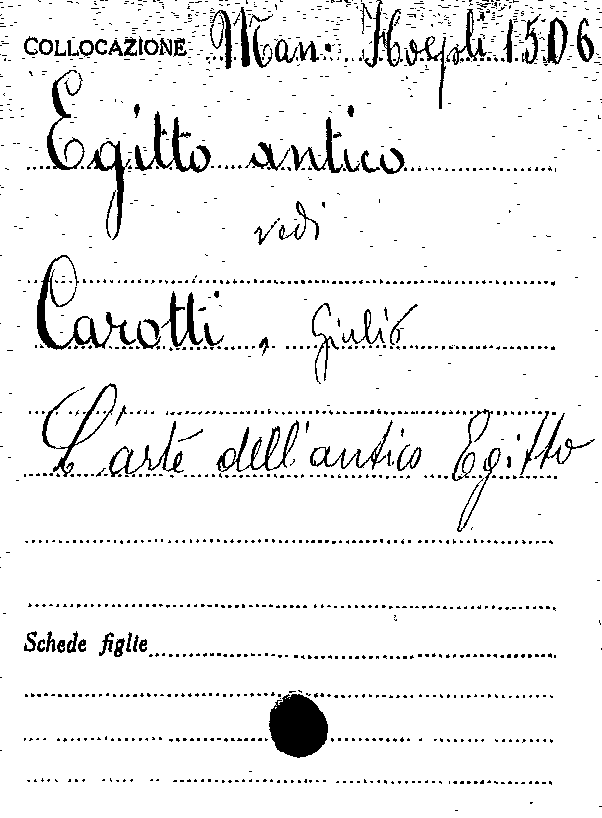 COLLOCAZIONE Man. Hoepli 1506
Egitto antico
vedi
Carotti, Giulio
L'arte dell'antico Egitto
Schede figlie